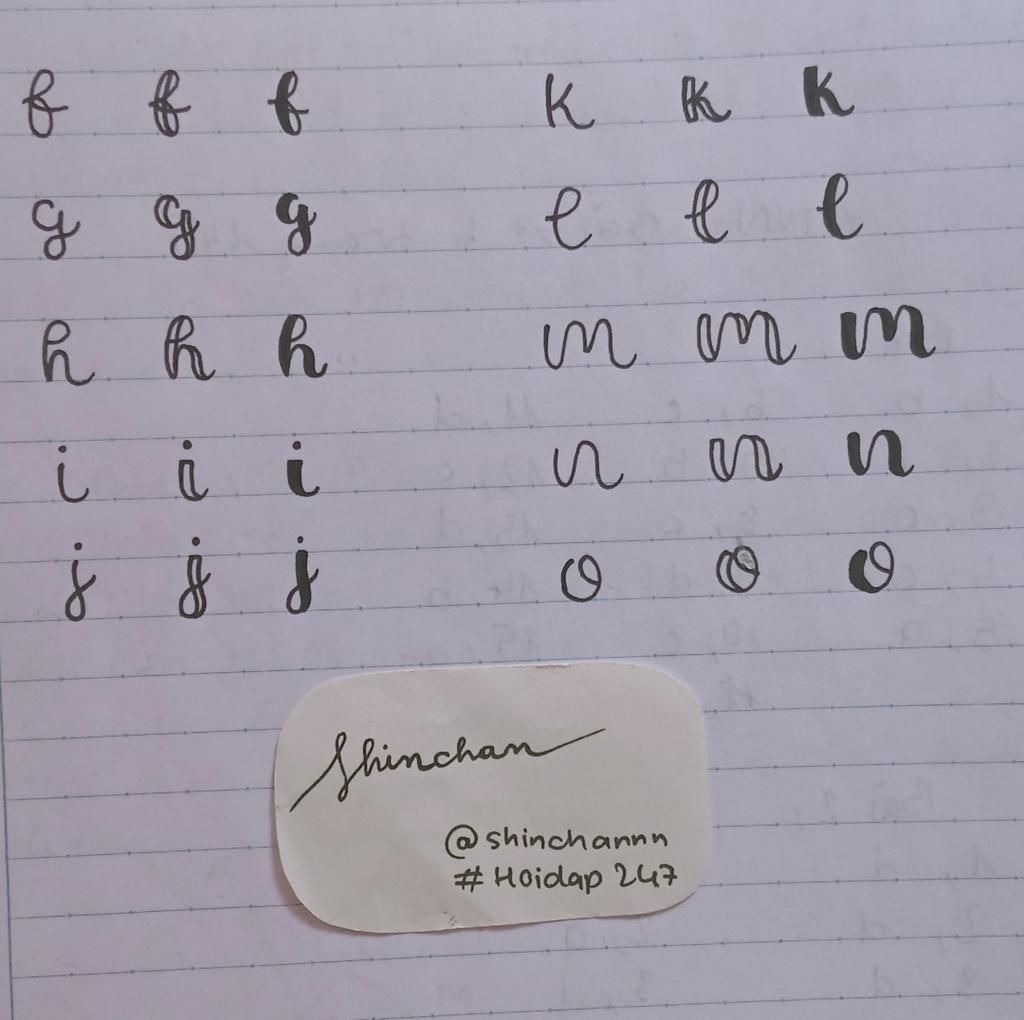 f f f k k k
g g g l l l
h h h m m m
i i i n n n
j j j o o o
Shinchan
@shinchannn
# Hoidap 247